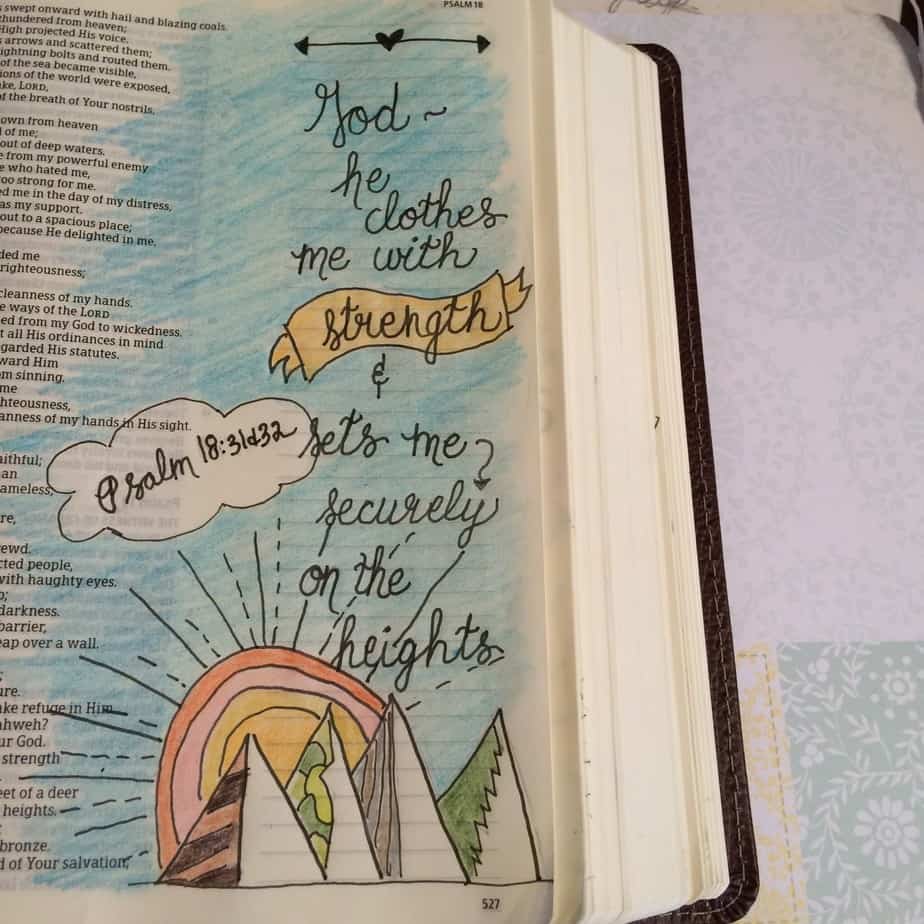 PSALM 18
swept onward with hail and blazing coals.
thundered from heaven;
High projected His voice.
arrows and scattered them;
lightning bolts and routed them.
of the sea became visible,
of the world were exposed,
LORD,
of the breath of Your nostrils.
down from heaven
of me;
out of deep waters.
from my powerful enemy
who hated me,
too strong for me.
me in the day of my distress,
as my support.
out to a spacious place;
because He delighted in me.
me
righteousness;
cleanness of my hands.
ways of the LORD
from my God to wickedness.
all His ordinances in mind
His statutes.
Him
sinning.
me
cleanness of my hands in His sight.
God ~
he
clothes
me with
strength
&
sets me
securely
on the
heights
Psalm 18:31&32
people,
with haughty eyes.
darkness.
barrier,
leap over a wall.
take refuge in Him.
God.
strength
feet of a deer
heights.
bronze.
of Your salvation;
527